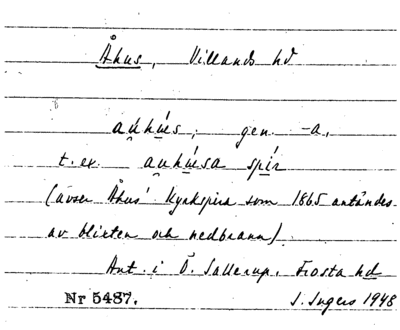 Åhus, Villands hd
au̯hu̯ś, gen. -a,
t. ex. au̯hu̯śa spír
(avser Åhus' kyrkspira som 1865 antändes
av blixten och nedbrann)
Ant. i Ö. Sallerup, Frosta hd
Nr 5487. I. Ingers 1948